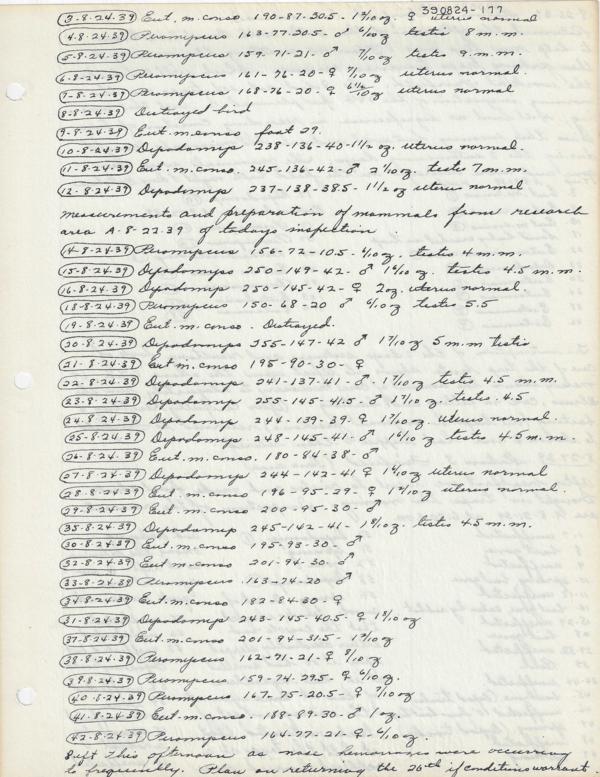 390824-177
3-8-24-39 Eut. m. conso 190-87-30.5 - 1 9/10 oz. ♀ uterus normal
4-8-24-39 Peromyscus 163-77-20.5- ♂ 6/10 oz testis 8 m.m.
5-8-24-39 Peromyscus 159-71-21- ♂ 7/10 oz testes 9. m.m.
6-8-24-39 Peromyscus 161-76-20-♀ 7/10 oz uterus normal.
7-8-24-39 Peromyscus 168-76-20-♀ 6 1/2/10 oz uterus normal
8-8-24-39 Destroyed bird
9-8-24-39 Eut. m. conso foot 29.
10-8-24-39 Depodomys 238-136-40-1 1/2 oz. uterus normal.
11-8-24-39 Eut. m. conso. 245-136-42-♂ 2 1/10 oz. testes 7 m.m.
12-8-24-39 Depodomys 237-138-38.5- 1 1/2 oz uterus normal
measurements and preparation of mammals from research
area A-8-22-39 of todays inspection
14-8-24-39 Peromyscus 156-72-10.5- 6/10 oz. testes 4 m.m.
15-8-24-39 Depodomys 250-149-42-♂ 1 9/10 oz. testes 4.5 m.m.
16-8-24-39 Depodomys 250-145-42-♀ 2 oz. uterus normal.
18-8-24-39 Peromyscus 150-68-20 ♂ 6/10 oz testes 5.5
19-8-24-39 Eut. m. conso. Destroyed.
20-8-24-39 Depodomys 255-147-42 ♂ 1 7/10 oz 5 m.m testis
21-8-24-39 Eut m. conso 195-90-30-♀
22-8-24-39 Depodomys 241-137-41-♂- 1 7/10 oz testes 4.5 m.m.
23-8-24-39 Depodomys 255-145-41.5-♂ 1 7/10 oz. testes .4.5
24-8-24-39 Depodomys 244-139-39-♀ 1 7/10 oz. uterus normal.
25-8-24-39 Depodomys 248-145-41-♂ 1 6/10 oz testes 4.5 m.m.
26-8-24-39 Eut. m. conso. 180-84-38-♂
27-8-24-39 Depodomys 244-142-41 ♀ 1 6/10 oz uterus normal
28-8-24-39 Eut. m. conso 196-95-29-♀ 1 2/10 oz uterus normal.
29-8-24-39 Eut. m. conso 200-95-30-♂
35-8-24-39 Depodomys 245-142-41-1 8/10 oz. testes 4.5 m.m.
30-8-24-39 Eut. m. conso 195-93-30-♂
32-8-24-39 Eut. m. conso 201-94-30-♂
33-8-24-39 Peromyscus .163-74-20 ♂
34-8-24-39 Eut. m. conso 182-84-30-♀
31-8-24-39 Depodomys 243-145-40.5-♀ 1 8/10 oz
37-8-24-39 Eut. m. conso 201-94-31.5- 1 7/10 oz
38-8-24-39 Peromyscus 162-71-21-♀ 8/10 oz
39-8-24-39 Peromyscus 159-74-29.5-♀ 6/10 oz.
40-8-24-39 Peromyscus 167-75-20.5-♀ 7/10 oz
41-8-24-39 Eut. m. conso. 188-89-30-♂ 1 oz.
42-8-24-39 Peromyscus 164-77-21-♀- 6/10 oz.
Left this afternoon as nose hemorrages were occurring
to frequently. Plan on returning the 26th if conditions warrant.